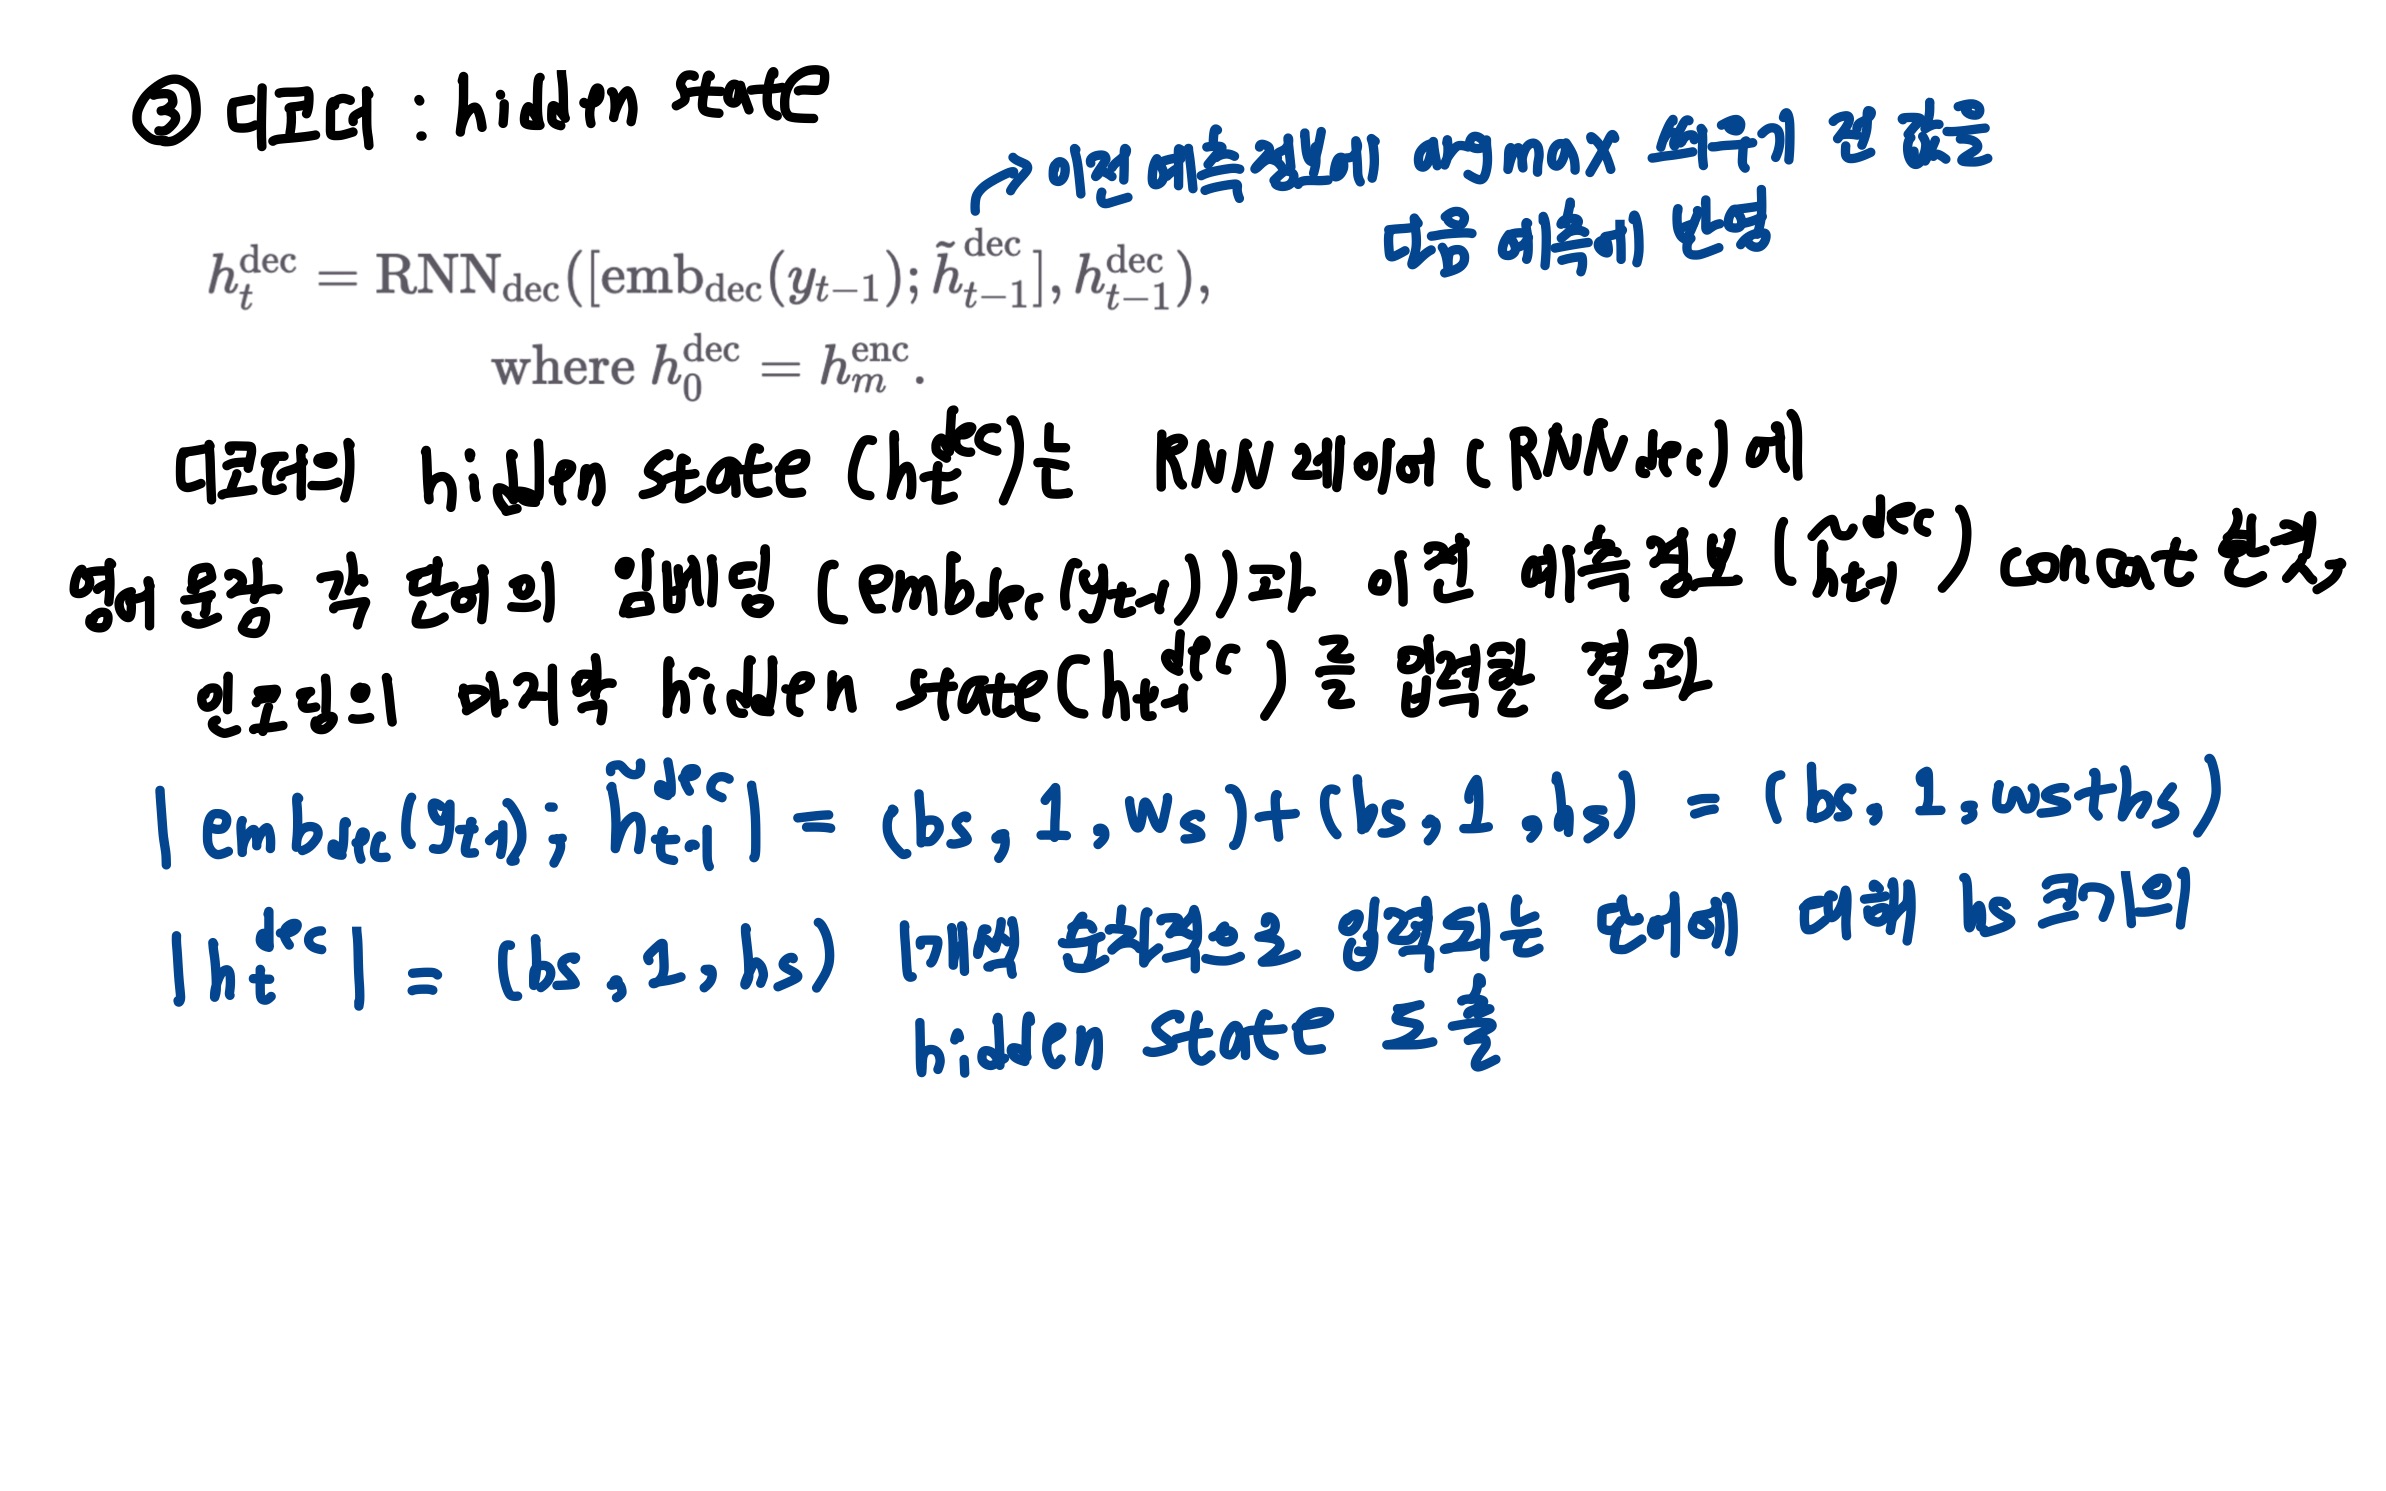 ③ 디코더 : hidden state
→ 이전 예측정보에 argmax 씌우기 전 값을
다음 예측에 반영
h_t^dec = RNN_dec([emb_dec(y_{t−1}); h̃_{t−1}^dec], h_{t−1}^dec),
where h_0^dec = h_m^enc.
디코더의 hidden state (h_t^dec)는 RNN 레이어 (RNN_dec)에
영어 문장 각 단어의 임베딩 (emb_dec(y_{t-1}))과 이전 예측 정보 (h̃_{t-1}^dec) concat 한 것,
인코딩의 마지막 hidden state(h_{t-1}^dec)를 입력한 결과
|emb_dec(y_{t-1}); h̃_{t-1}^dec| = (bs, 1, ws)+(bs, 1, hs) = (bs, 1, ws+hs)
|h_t^dec| = (bs, 1, hs) 1개씩 순차적으로 입력되는 단어에 대해 hs 크기의
hidden state 도출